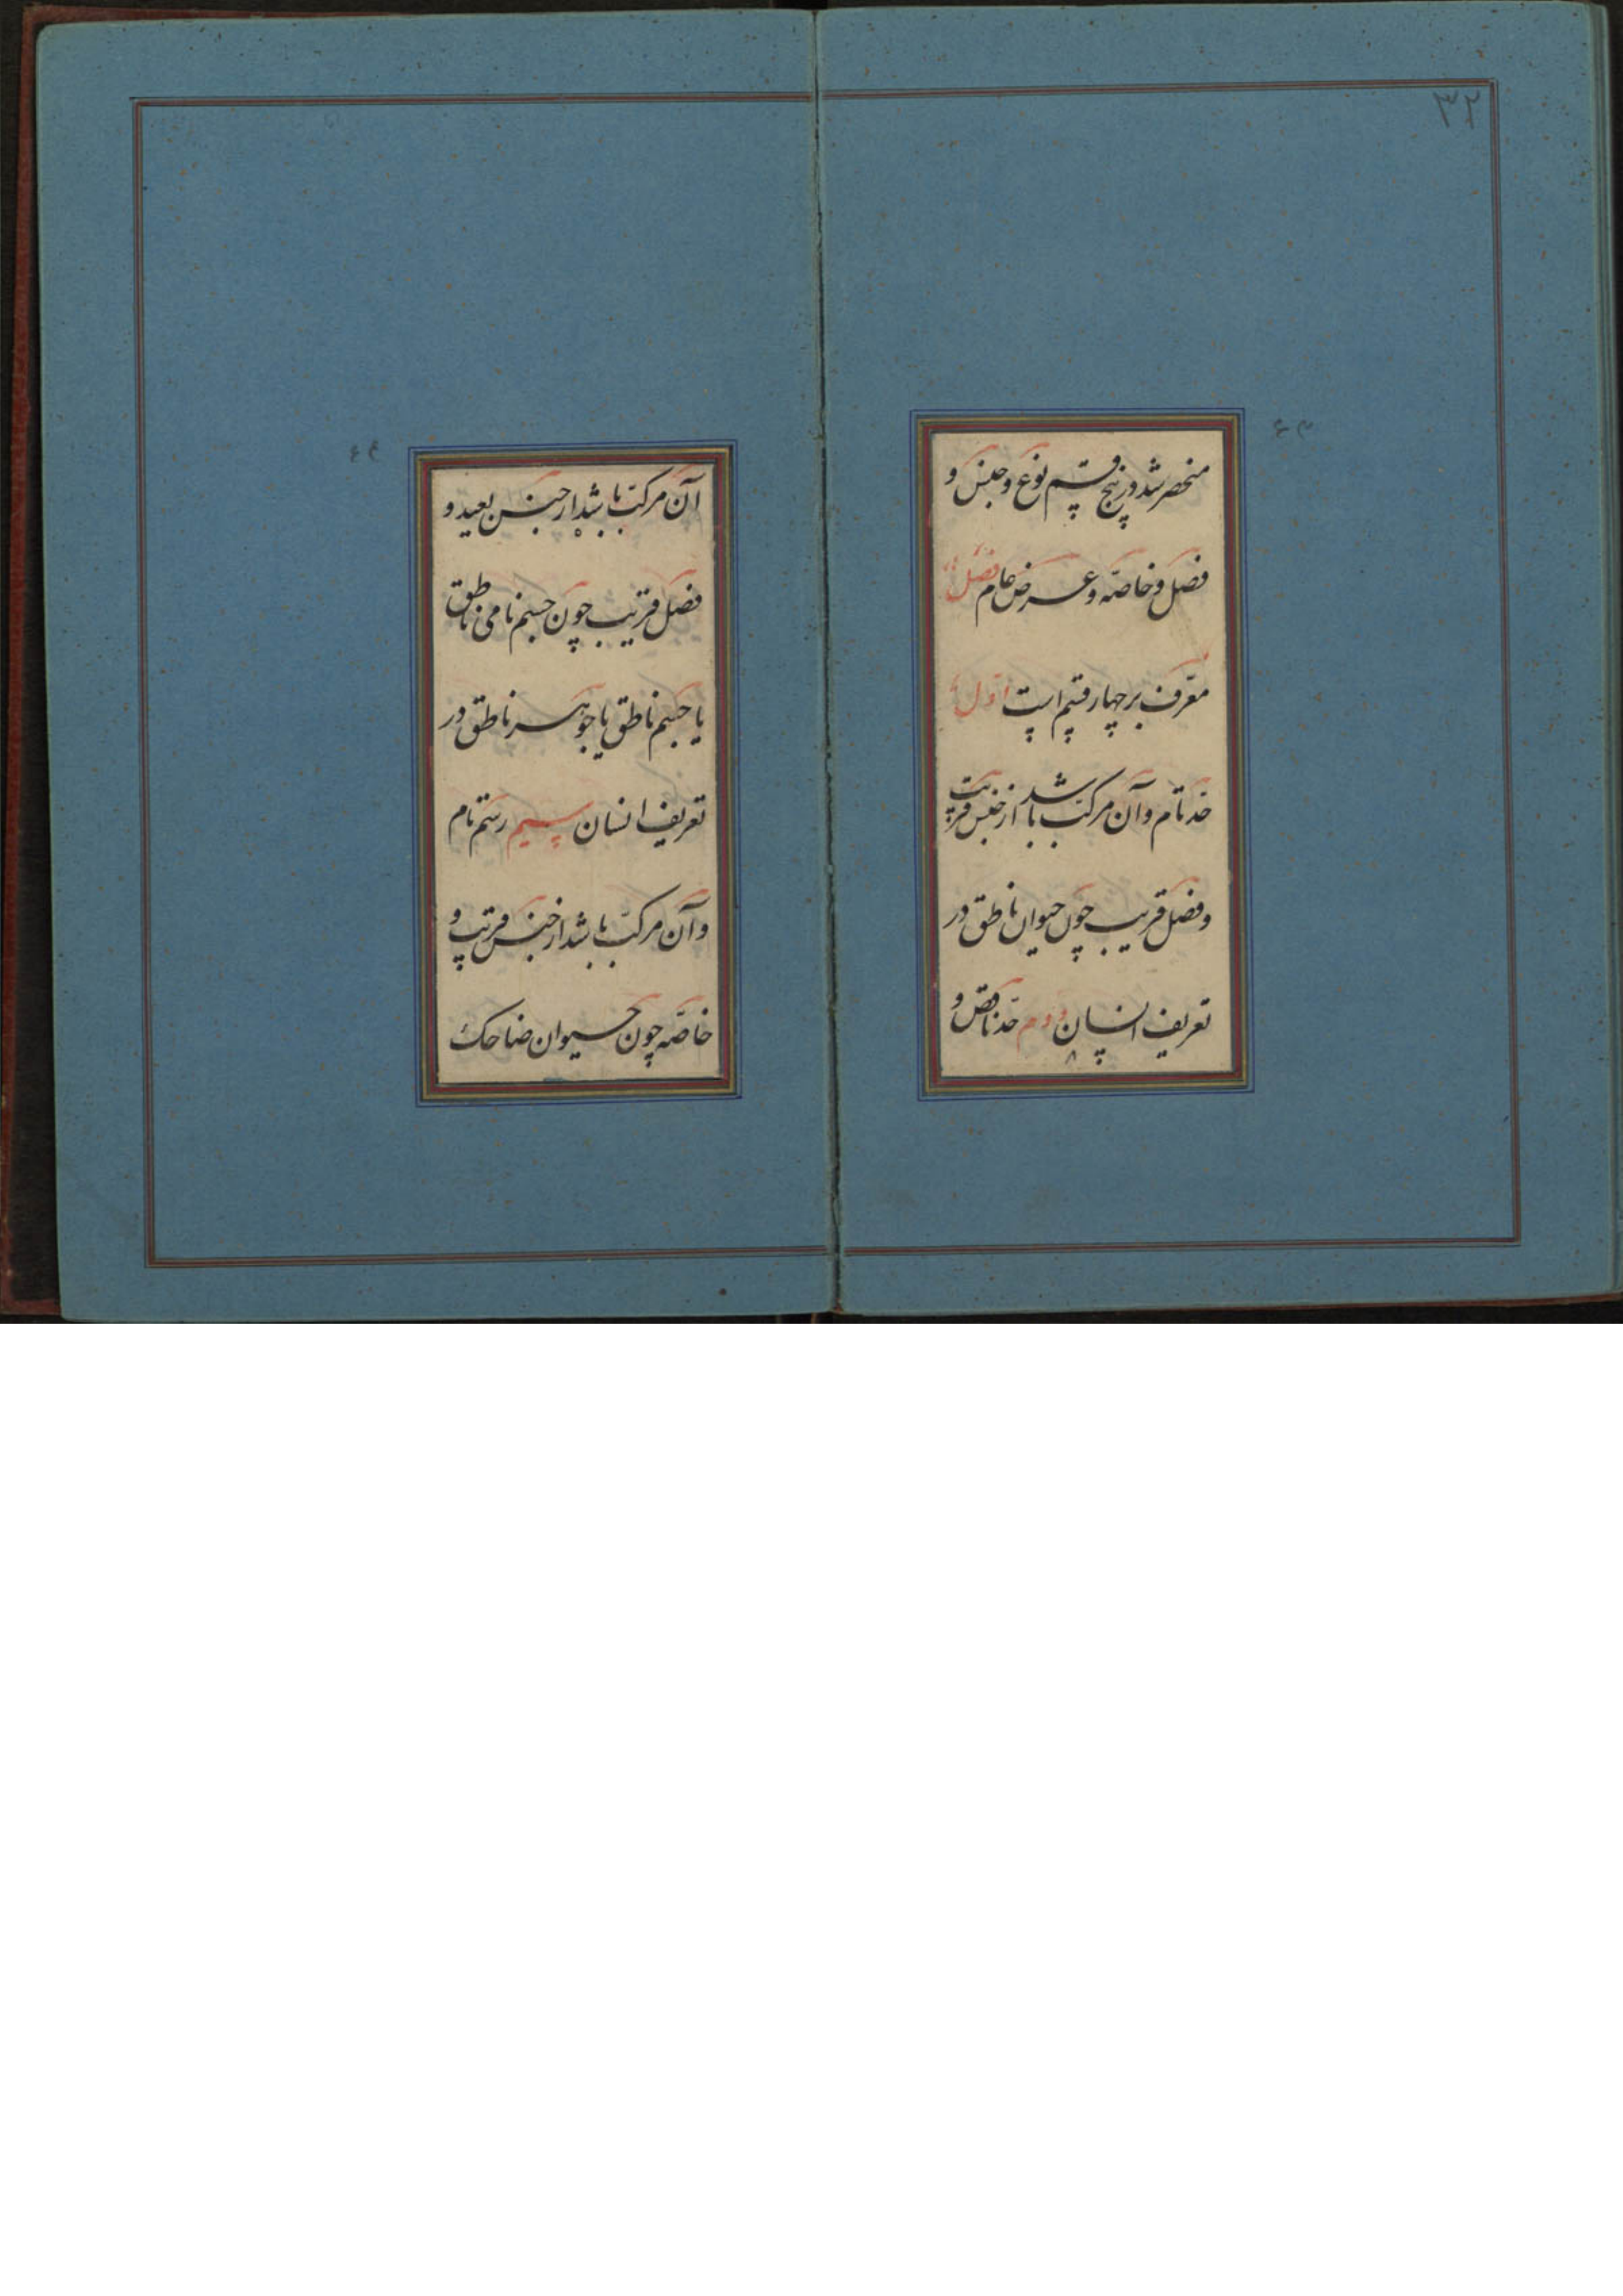 ۳۲
منحصر شد در پنج قسم نوع و جنس و
فصل و خاصّه و عرض عام فصل
معرّف بر چهار قسم است اوّل
حد تام و آن مرکّب باشد از جنس قریب
و فصل قریب چون حیوان ناطق در
تعریف انسان دوم حدّ ناقص و
آن مرکّب باشد از جنس بعید و
فصل قریب چون جسم نامی ناطق
یا جسم ناطق یا جوهر ناطق در
تعریف انسان سیم رسم تام
و آن مرکّب باشد از جنس قریب و
خاصّه چون حیوان ضاحک